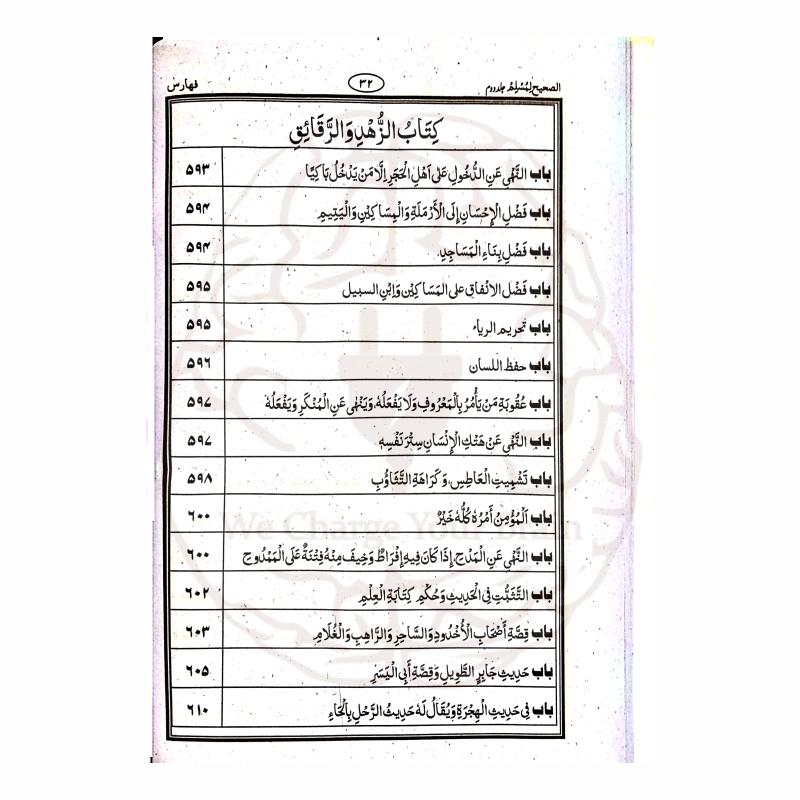 الصحیح لمُسْلِمْ جلد دوم ۳۲ فهارس
كِتَابُ الزُّهْدِ وَالرَّقَائِقِ
باب النَّهْيِ عَنِ الدُّخُولِ عَلَى أَهْلِ الْحَجَرِ إِلَّا مَنْ يَدْخُلُ بَاكِيًا ۵۹۳
باب فَضْلِ الْإِحْسَانِ إِلَى الْأَرْمَلَةِ وَالْمِسَاكِيْنِ وَالْيَتِيمِ ۵۹۴
باب فَضْلِ بِنَاءِ الْمَسَاجِدِ ۵۹۴
باب فَضْلِ الانْفاقِ على المَسَاكِيْنِ وَابْنِ السبيل ۵۹۵
باب تحريم الرياء ۵۹۵
باب حفظ اللسان ۵۹۶
باب عُقُوبَةِ مَنْ يَأْمُرُ بِالْمَعْرُوفِ وَلَا يَفْعَلُهُ، وَيَنْهٰى عَنِ الْمُنْكَرِ وَيَفْعَلُهُ ۵۹۷
باب النَّهْيِ عَنْ هَتْكِ الْإِنْسَانِ سِتْرَ نَفْسِهِ ۵۹۷
باب تَشْمِيتِ الْعَاطِسِ، وَكَرَاهَةِ التَّثَاؤُبِ ۵۹۸
باب اَلْمُؤْمِنُ أَمْرُهُ كُلُّهُ خَيْرٌ ۶۰۰
باب النَّهْيِ عَنِ الْمَدْحِ إِذَا كَانَ فِيهِ إِفْرَاطٌ وَخِيفَ مِنْهُ فِتْنَةٌ عَلَى الْمَمْدُوحِ ۶۰۰
باب التَّثَبُّتِ فِي الْحَدِيثِ وَحُكْمِ كِتَابَةِ الْعِلْمِ ۶۰۲
باب قِصَّةِ أَصْحَابِ الْأُخْدُودِ وَالسَّاحِرِ وَالرَّاهِبِ وَالْغُلَامِ ۶۰۳
باب حَدِيثِ جَابِرٍ الطَّوِيلِ وَقِصَّةِ أَبِي الْيَسَرِ ۶۰۵
باب فِي حَدِيثِ الْهِجْرَةِ وَيُقَالُ لَهُ حَدِيثُ الرَّحْلِ بِالْحَاءِ ۶۱۰
We Charge Your Brain